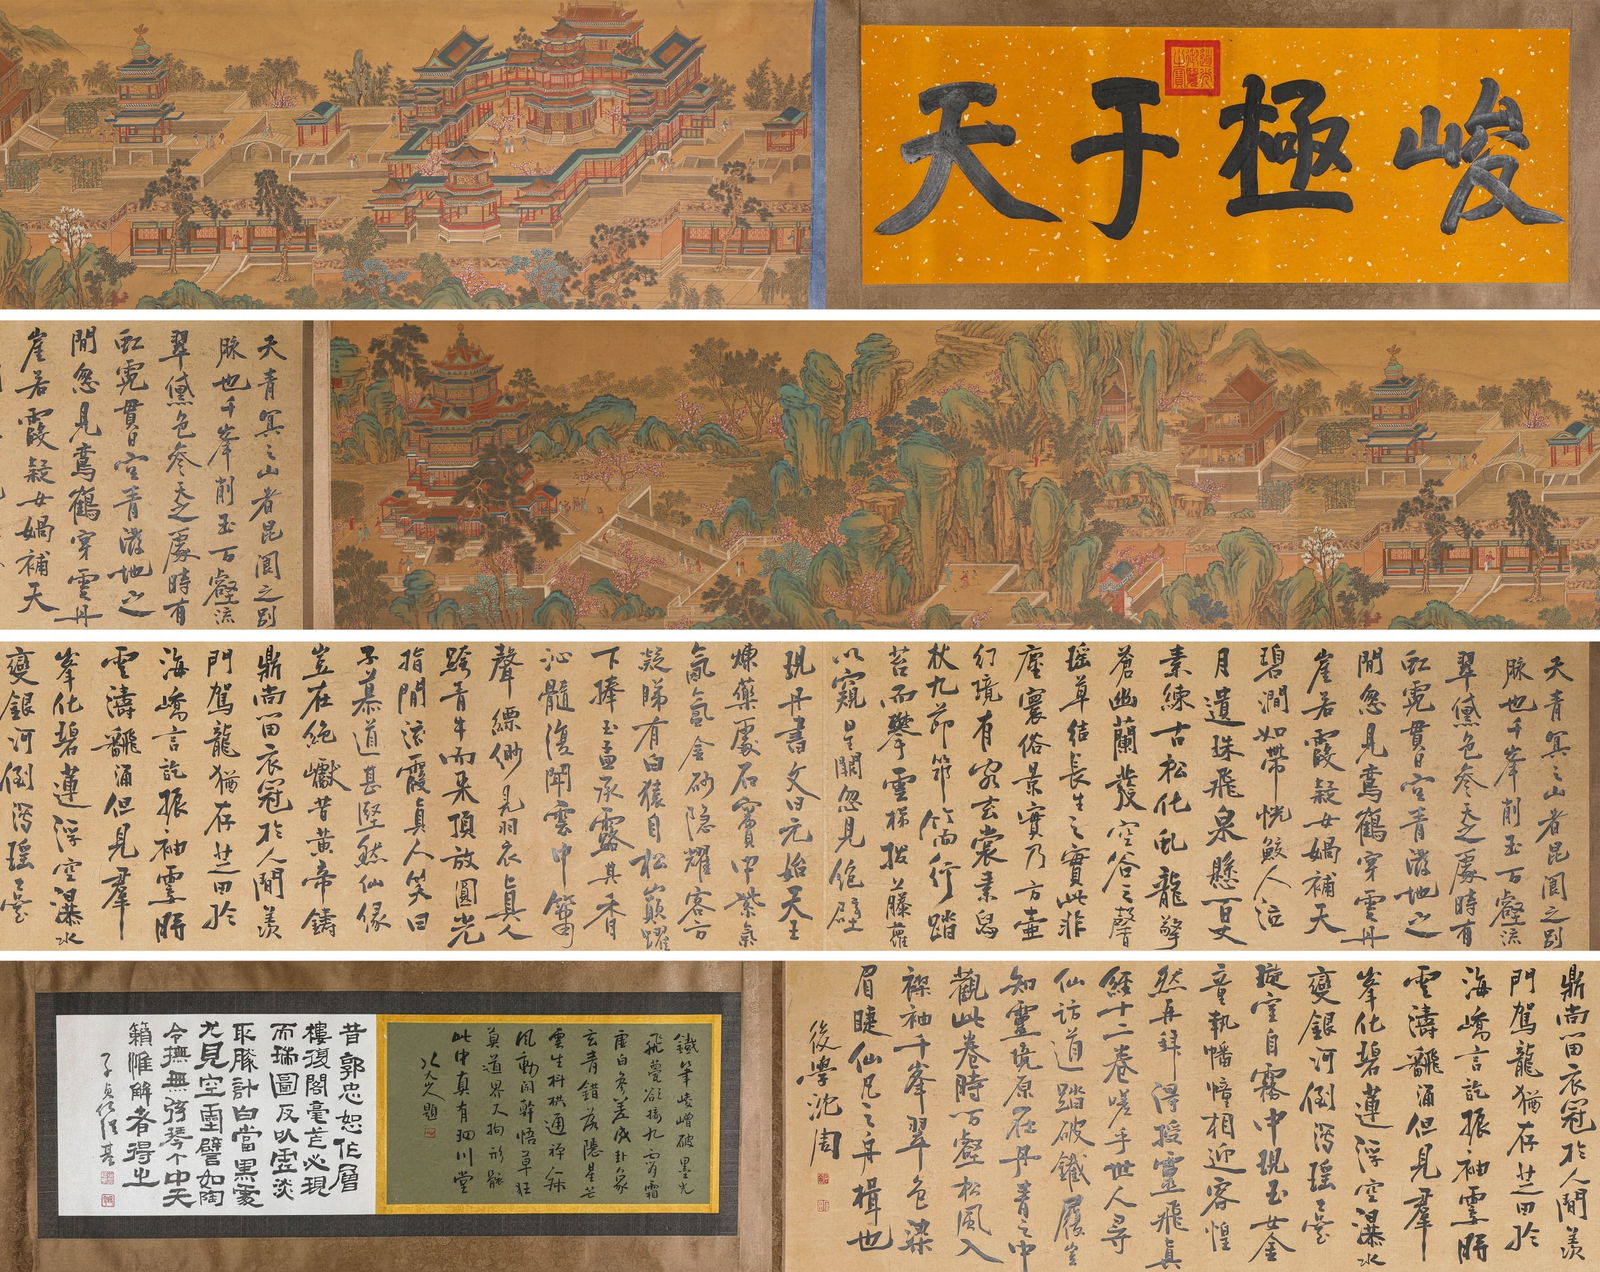 峻極于天
天青冥之山者昆閬之別
脉也千峯削玉百壑流
翠黛色參天之處時有
虹霓貫日宮青游地之
間忽見鸞鶴穿雲丹
崖若霞疑女媧補天
天青冥之山者昆閬之別
脉也千峯削玉百壑流
翠黛色參天之處時有
虹霓貫日宮青游地之
間忽見鸞鶴穿雲丹
崖若霞疑女媧補天
碧澗如帶恍鮫人泣
月遺珠飛泉懸百丈
素練古松化虬龍擎
蒼幽蘭發空谷之馨
瑤草結長生之實此非
塵寰俗景實乃方壺
幻境有客玄裳素舄
杖九節笻而行踏
苔而攀雲梯撥藤蘿
以窺星闕忽見絕壁
現丹書文曰元始天王
煉藥處石竇中紫氣
氤氳金砂隱耀客方
凝睇有白猿自松巔躍
下捧玉盞承露其香
沁髓復聞雲中簫
聲縹緲見羽衣真人
跨青牛而來頂放圓光
指間流霞真人笑曰
子慕道甚堅然仙緣
豈在絕巘昔黃帝鑄
鼎尚留衣冠於人間羨
門駕龍猶存芝田於
海嶠言訖振袖霎時
雲濤翻涌但見羣
峯化碧蓮浮空瀑水
變銀河倒瀉瑤臺
鼎尚留衣冠於人間羨
門駕龍猶存芝田於
海嶠言訖振袖霎時
雲濤翻涌但見羣
峯化碧蓮浮空瀑水
變銀河倒瀉瑤臺
璇室自霧中現玉女金
童執幡幢相迎客惶
然再拜得授靈飛真
經十二卷嗟乎世人尋
仙訪道踏破鐵履豈
知靈境原在丹青之中
觀此卷時百壑松風入
襟袖千峯翠色染
眉睫仙凡之舟楫也
後學沈周
鐵筆崚嶒破墨光
飛甍欲接九霄霜
唐白參差成卦象
玄青錯落隱星芒
雲生枓栱通禪味
風動闌幹悟草狂
莫道界尺拘形骸
此中真有輞川堂
八大人題
昔郭忠恕作層
樓複閣毫芒必現
而瑞圖反以虛淡
取勝計白當黑處
尤見空靈譬如陶
令撫無弦琴个中天
籟惟解者得之
子貞何紹基